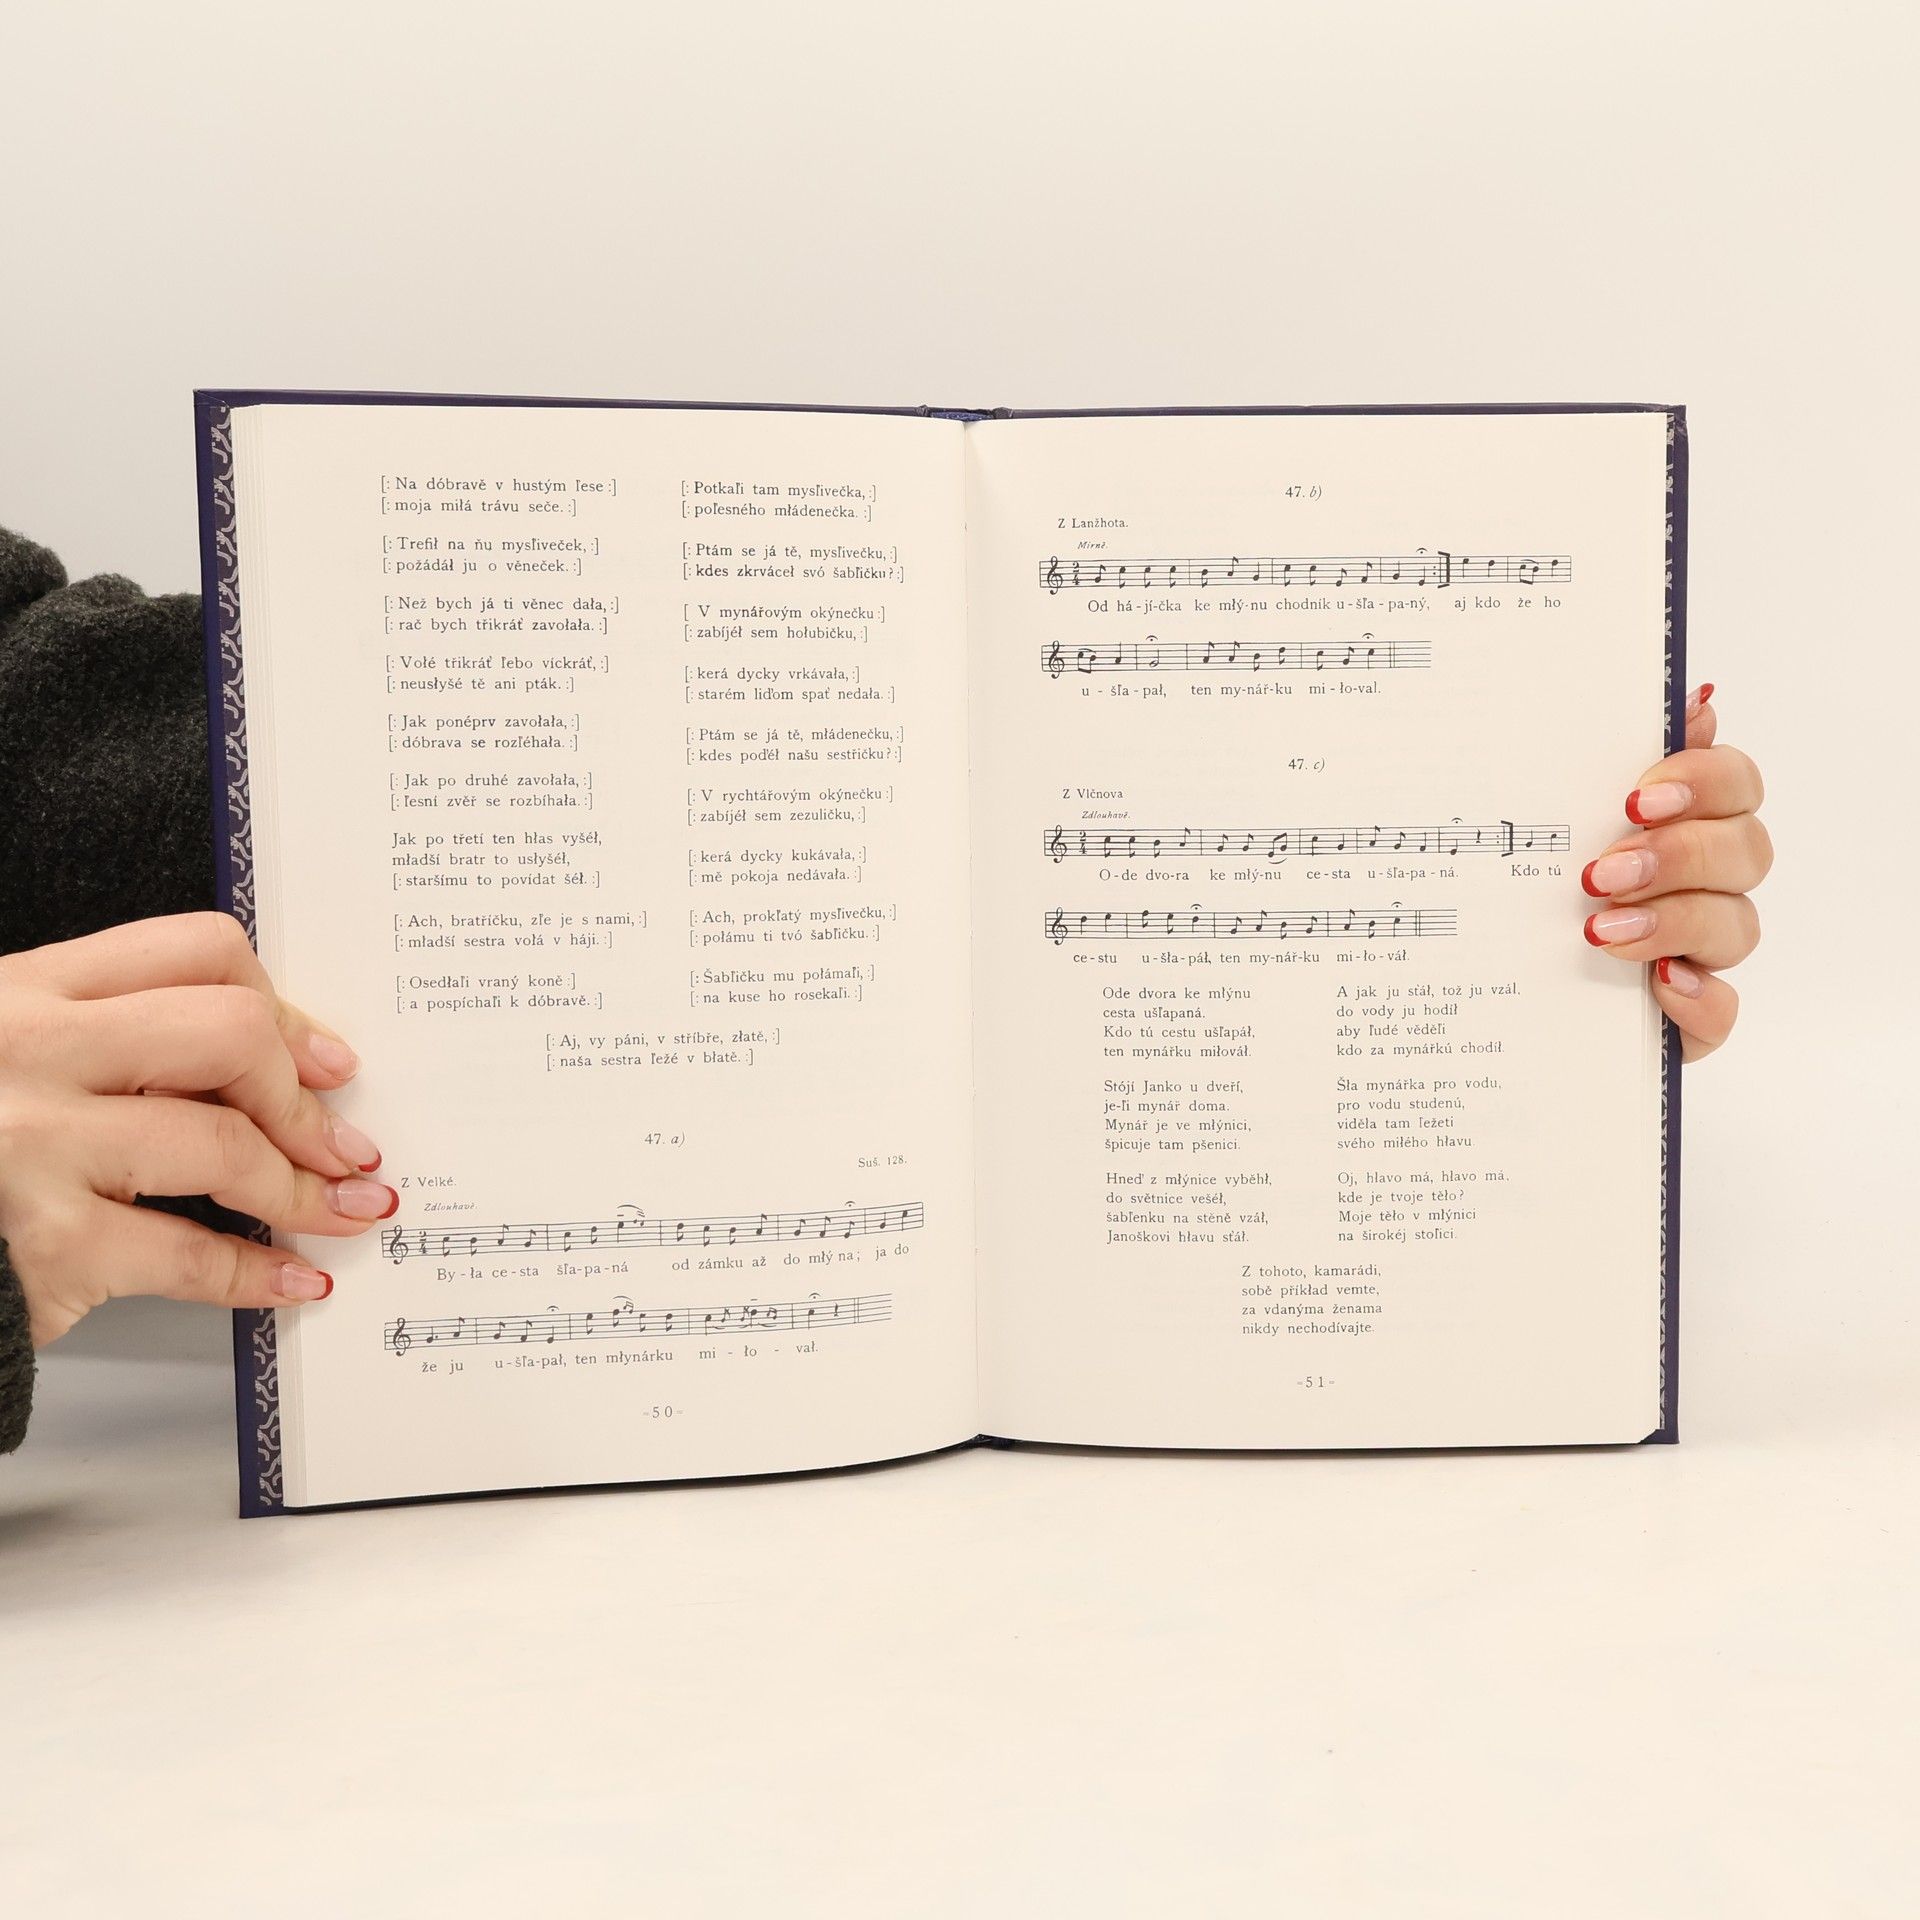 [: Na dóbravě v hustým ľese :]
[: moja miłá trávu seče. :]
[: Trefił na ňu mysľiveček, :]
[: požádáł ju o věneček. :]
[: Než bych já ti věnec dała, :]
[: rač bych třikráť zavołała. :]
[: Vołé třikráť ľebo víckráť, :]
[: neusłyšé tě ani pták. :]
[: Jak ponéprv zavołała, :]
[: dóbrava se rozľéhała. :]
[: Jak po druhé zavołała, :]
[: ľesní zvěř se rozbíhała. :]
Jak po třetí ten hłas vyšéł,
mładší bratr to usłyšéł,
[: staršímu to povídat šéł. :]
[: Ach, bratříčku, zľe je s nami, :]
[: mładší sestra vołá v háji. :]
[: Osedłaľi vraný koně :]
[: a pospíchaľi k dóbravě. :]
[: Potkaľi tam mysľivečka, :]
[: poľesného młádenečka. :]
[: Ptám se já tě, mysľivečku, :]
[: kdes zkrváceł svó šabľičku? :]
[ V mynářovým okýnečku :]
[: zabíjéł sem hołubičku, :]
[: kerá dycky vrkávała, :]
[: starém liďom spať nedała. :]
[: Ptám se já tě, młádenečku, :]
[: kdes poďéł našu sestřičku? :]
[: V rychtářovým okýnečku :]
[: zabíjéł sem zezuličku, :]
[: kerá dycky kukávała, :]
[: mě pokoja nedávała. :]
[: Ach, prokľatý mysľivečku, :]
[: połámu ti tvó šabľičku. :]
[: Šabľičku mu połámaľi, :]
[: na kuse ho rosekaľi. :]
[: Aj, vy páni, v stříbře, złatě, :]
[: naša sestra ľežé v błatě. :]
47. a)
Suš. 128.
Z Velké.
Zdlouhavě.
By - ła ce - sta šľa - pa - ná od zámku až do młý na; ja do
že ju u - šľa - pał, ten młynárku mi - ło - vał.
- 50 -
47. b)
Z Lanžhota.
Mírně.
Od há - jí - čka ke młý - nu chodník u - šľa - pa - ný, aj kdo že ho
u - šľa - pał, ten my - nář - ku mi - ło - val.
47. c)
Z Vlčnova
Zdlouhavě.
O - de dvo - ra ke młý - nu ce - sta u - šľa - pa - ná. Kdo tú
ce - stu u - šła - páł, ten my - nář - ku mi - ło - váł.
Ode dvora ke młýnu
cesta ušľapaná.
Kdo tú cestu ušľapáł,
ten mynářku miłováł.
Stójí Janko u dveří,
je-ľi mynář doma.
Mynář je ve młýnici,
špicuje tam pšenici.
Hneď z młýnice vyběhł,
do světnice vešéł,
šabľenku na stěně vzáł,
Janoškovi hłavu sťáł.
A jak ju sťáł, tož ju vzál,
do vody ju hodíł
aby ľudé věděľi
kdo za mynářkú chodíł.
Šła mynářka pro vodu,
pro vodu studenú,
viděla tam ľežeti
svého miłého hłavu.
Oj, hlavo má, hlavo má,
kde je tvoje těło?
Moje těło v młýnici
na širokéj stoľici.
Z tohoto, kamarádi,
sobě příkład vemte,
za vdanýma ženama
nikdy nechodívajte.
- 51 -